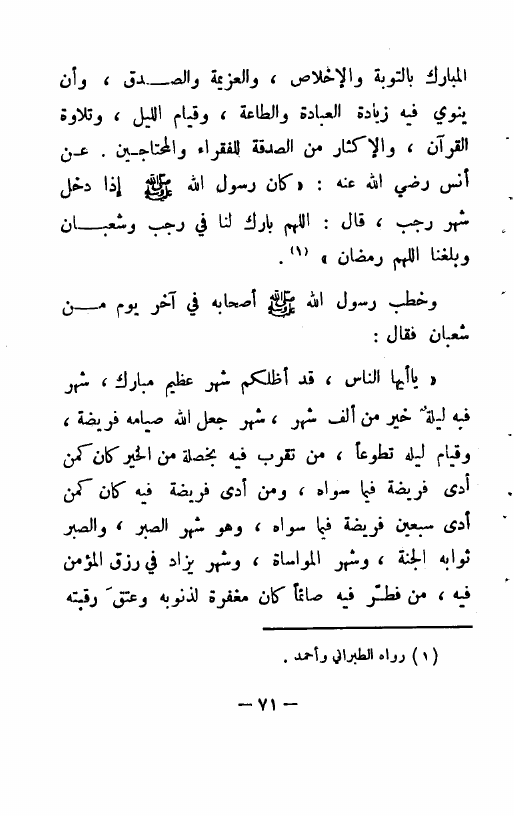 المبارك بالتوبة والإخلاص ، والعزيمة والصـــدق ، وأن
ينوي فيه زيادة العبادة والطاعة ، وقيام الليل ، وتلاوة
القرآن ، والإكثار من الصدقة للفقراء والمحتاجـين . عـن
أنس رضي الله عنه : « كان رسول الله ﷺ إذا دخل
شهر رجب ، قال : اللهم بارك لنا في رجب وشعبـــان
وبلغنا اللهم رمضان » (١) .
وخطب رسول الله ﷺ أصحابه في آخر يوم مـــن
شعبان فقال :
« ياأيها الناس ، قد أظلكم شهر عظيم مبارك ، شهر
فيه ليلةٌ خير من ألف شهر ، شهر جعل الله صيامه فريضة ،
وقيام ليله تطوعاً ، من تقرب فيه بخصلة من الخير كان كمن
أدى فريضة فيما سواه ، ومن أدى فريضة فيه كان كمن
أدى سبعين فريضة فيما سواه ، وهو شهر الصبر ، والصبر
ثوابه الجنة ، وشهر المواساة ، وشهر يزاد في رزق المؤمن
فيه ، من فطّر فيه صائماً كان مغفرة لذنوبه وعتقَ رقبته
(١) رواه الطبراني وأحمد .
– ٧١ –